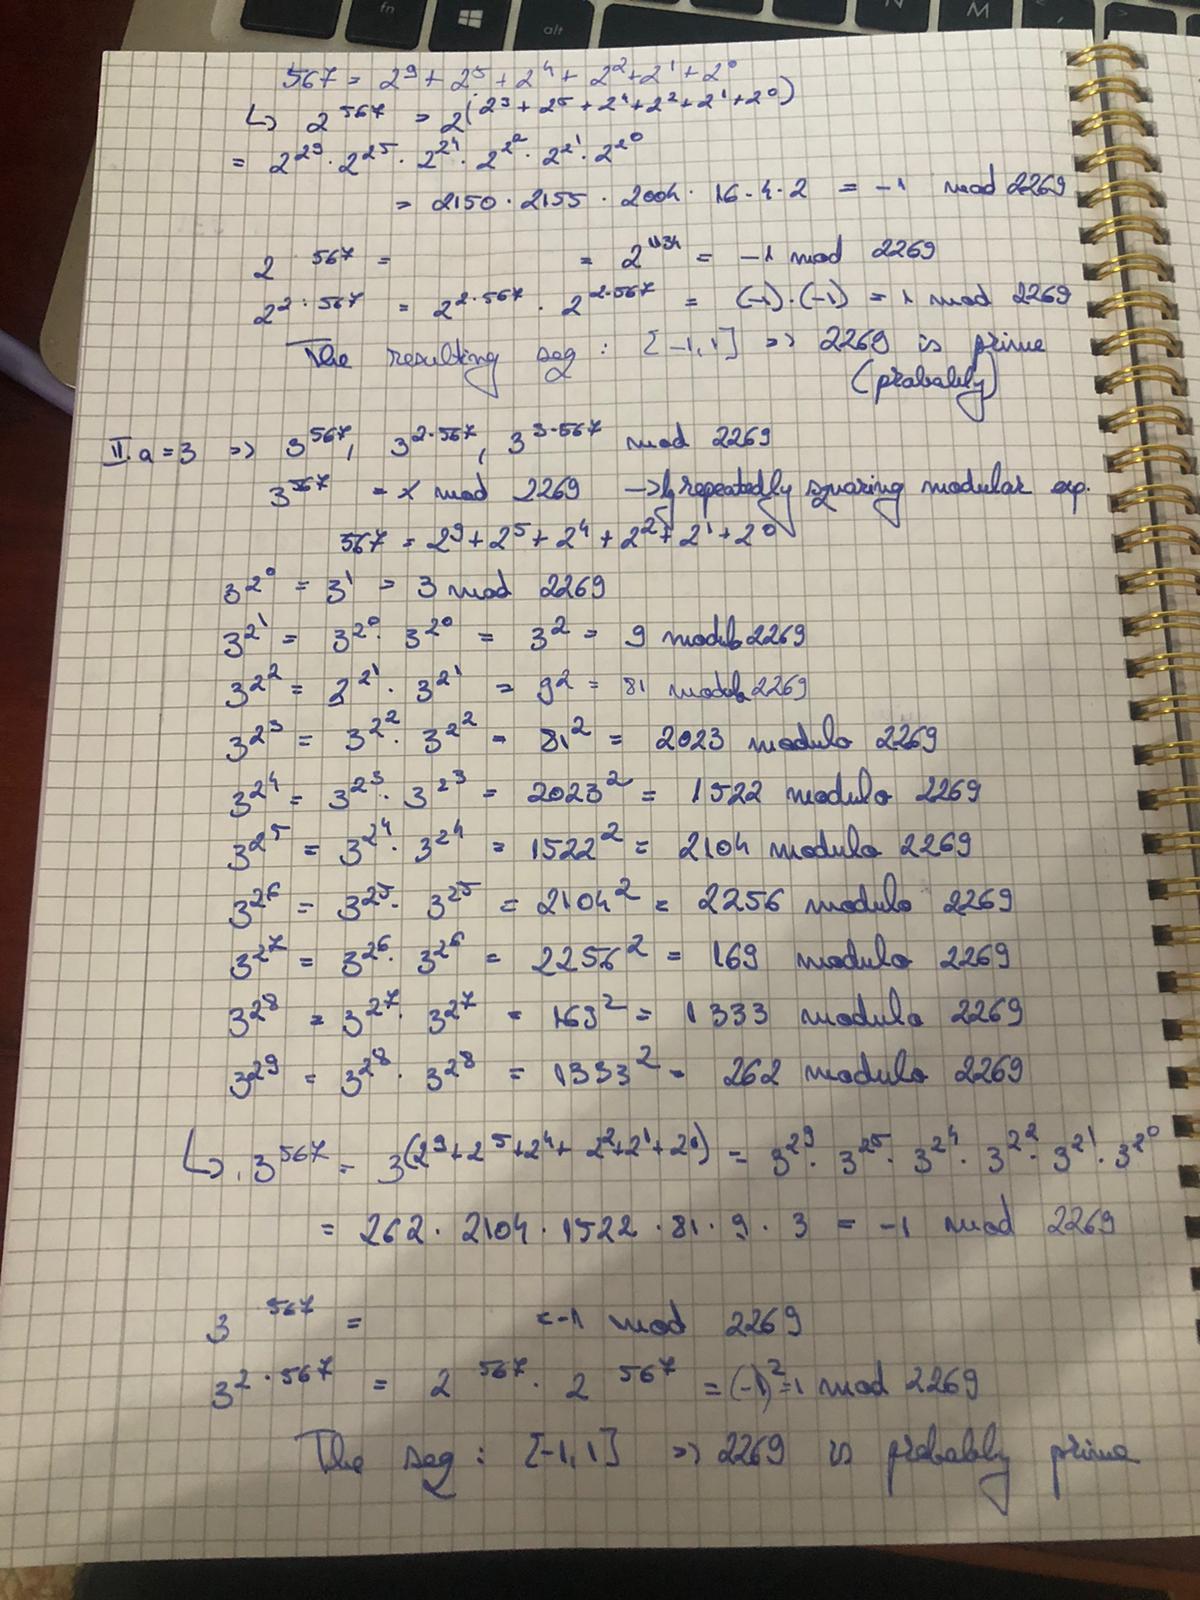 567 = 2^9 + 2^5 + 2^4 + 2^2 + 2^1 + 2^0
↳ 2^567 = 2^(2^9 + 2^5 + 2^4 + 2^2 + 2^1 + 2^0)
= 2^2^9 · 2^2^5 · 2^2^4 · 2^2^2 · 2^2^1 · 2^2^0
= 2150 · 2155 · 2004 · 16 · 4 · 2 = -1 mod 2269
2^567 = = 2^1134 = -1 mod 2269
2^2·567 = 2^2·567 · 2^2·567 = (-1)·(-1) = 1 mod 2269
The resulting seq : [-1, 1] => 2269 is prime
(probably)
II. a = 3 => 3^567, 3^2·567, 3^3·567 mod 2269
3^567 = x mod 2269 -> by repeatedly squaring modular exp.
567 = 2^9 + 2^5 + 2^4 + 2^2 + 2^1 + 2^0
3^2^0 = 3^1 = 3 mod 2269
3^2^1 = 3^2^0 · 3^2^0 = 3^2 = 9 modulo 2269
3^2^2 = 3^2^1 · 3^2^1 = 9^2 = 81 modulo 2269
3^2^3 = 3^2^2 · 3^2^2 = 81^2 = 2023 modulo 2269
3^2^4 = 3^2^3 · 3^2^3 = 2023^2 = 1522 modulo 2269
3^2^5 = 3^2^4 · 3^2^4 = 1522^2 = 2104 modulo 2269
3^2^6 = 3^2^5 · 3^2^5 = 2104^2 = 2256 modulo 2269
3^2^7 = 3^2^6 · 3^2^6 = 2256^2 = 169 modulo 2269
3^2^8 = 3^2^7 · 3^2^7 = 169^2 = 1333 modulo 2269
3^2^9 = 3^2^8 · 3^2^8 = 1333^2 = 262 modulo 2269
↳ 3^567 = 3^(2^9 + 2^5 + 2^4 + 2^2 + 2^1 + 2^0) = 3^2^9 · 3^2^5 · 3^2^4 · 3^2^2 · 3^2^1 · 3^2^0
= 262 · 2104 · 1522 · 81 · 9 · 3 = -1 mod 2269
3^567 = = -1 mod 2269
3^2·567 = 2^567 · 2^567 = (-1)^2 = 1 mod 2269
The seq : [-1, 1] => 2269 is probably prime